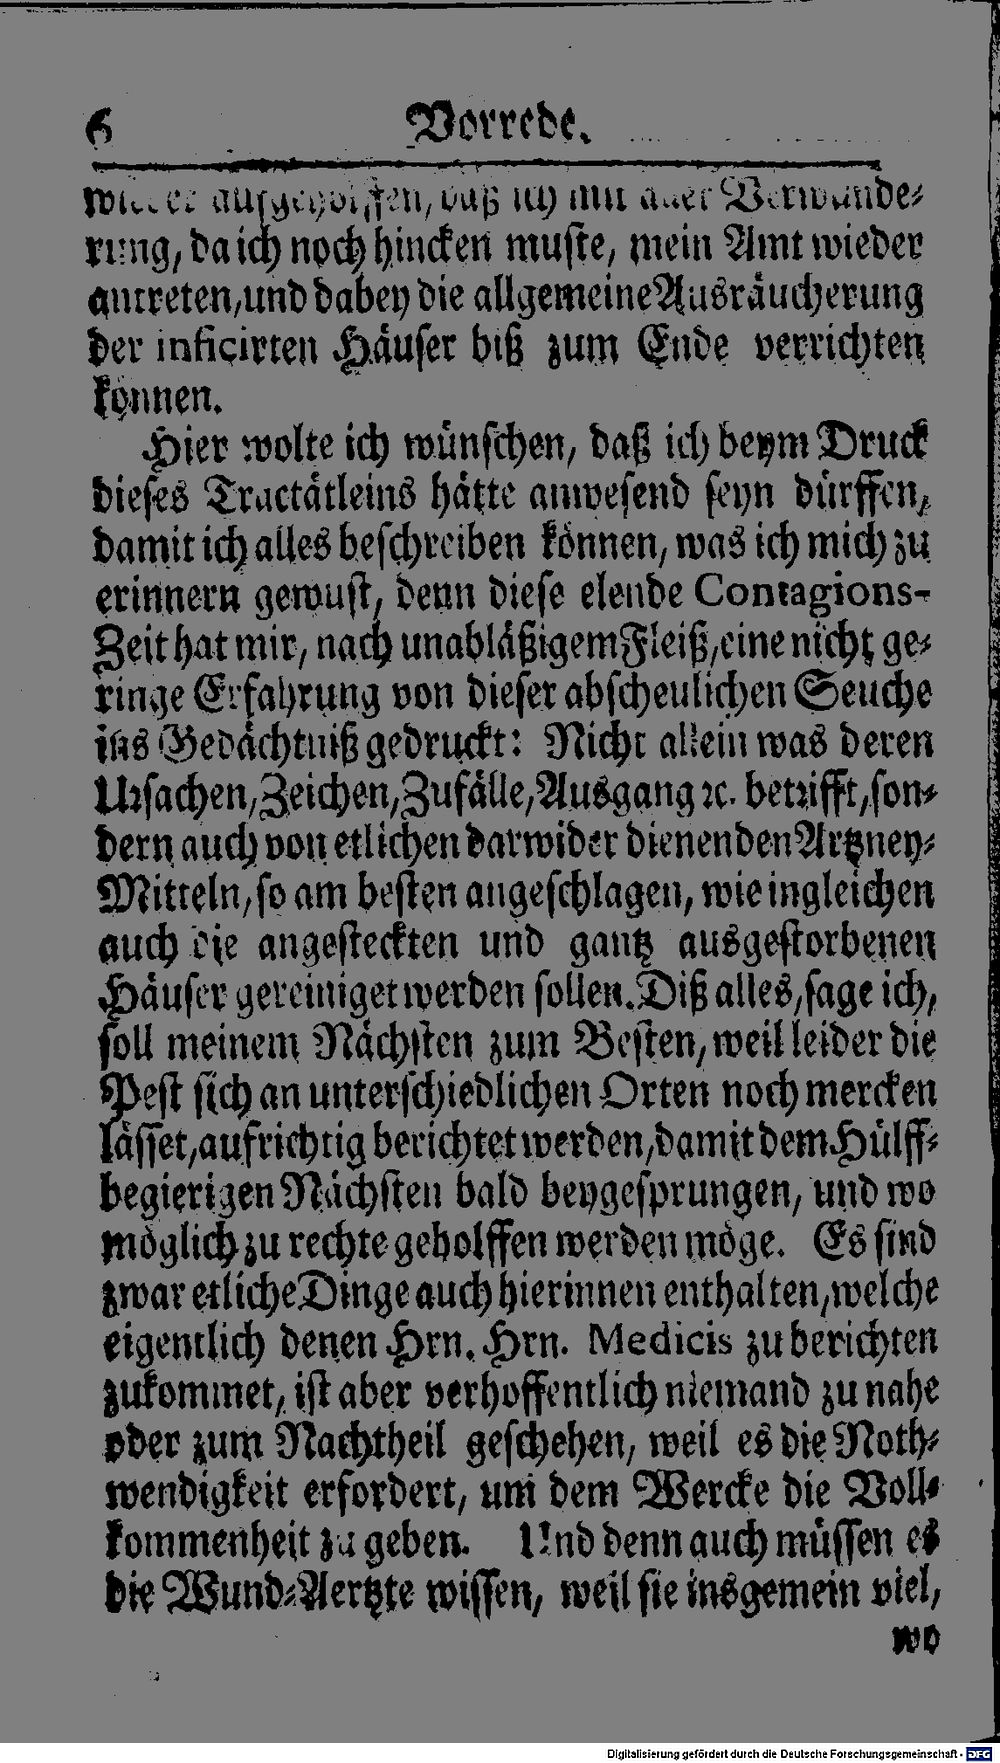 6 Vorrede.
wieder aufgeholffen, daß ich mit aller Verwunde-
rung, da ich noch hincken muste, mein Amt wieder
antreten, und dabey die allgemeine Ausräucherung
der inficirten Häuser biß zum Ende verrichten
können.
Hier wolte ich wünschen, daß ich beym Druck
dieses Tractätleins hätte anwesend seyn dürffen,
damit ich alles beschreiben können, was ich mich zu
erinnern gewust, denn diese elende Contagions-
Zeit hat mir, nach unabläßigem Fleiß, eine nicht ge-
ringe Erfahrung von dieser abscheulichen Seuche
ins Gedächtniß gedruckt: Nicht allein was deren
Ursachen, Zeichen, Zufälle, Ausgang ꝛc. betrifft, son-
dern auch von etlichen darwider dienenden Artzney-
Mitteln, so am besten angeschlagen, wie ingleichen
auch die angesteckten und gantz ausgestorbenen
Häuser gereiniget werden sollen. Diß alles, sage ich,
soll meinem Nächsten zum Besten, weil leider die
Pest sich an unterschiedlichen Orten noch mercken
lässet, aufrichtig berichtet werden, damit dem Hülff-
begierigen Nächsten bald beygesprungen, und wo
möglich zu rechte geholffen werden möge. Es sind
zwar etliche Dinge auch hierinnen enthalten, welche
eigentlich denen Hrn. Hrn. Medicis zu berichten
zukommet, ist aber verhoffentlich niemand zu nahe
oder zum Nachtheil geschehen, weil es die Noth-
wendigkeit erfordert, um dem Wercke die Voll-
kommenheit zu geben. Und denn auch müssen es
die Wund-Aertzte wissen, weil sie insgemein viel,
wo
Digitalisierung gefördert durch die Deutsche Forschungsgemeinschaft - DFG